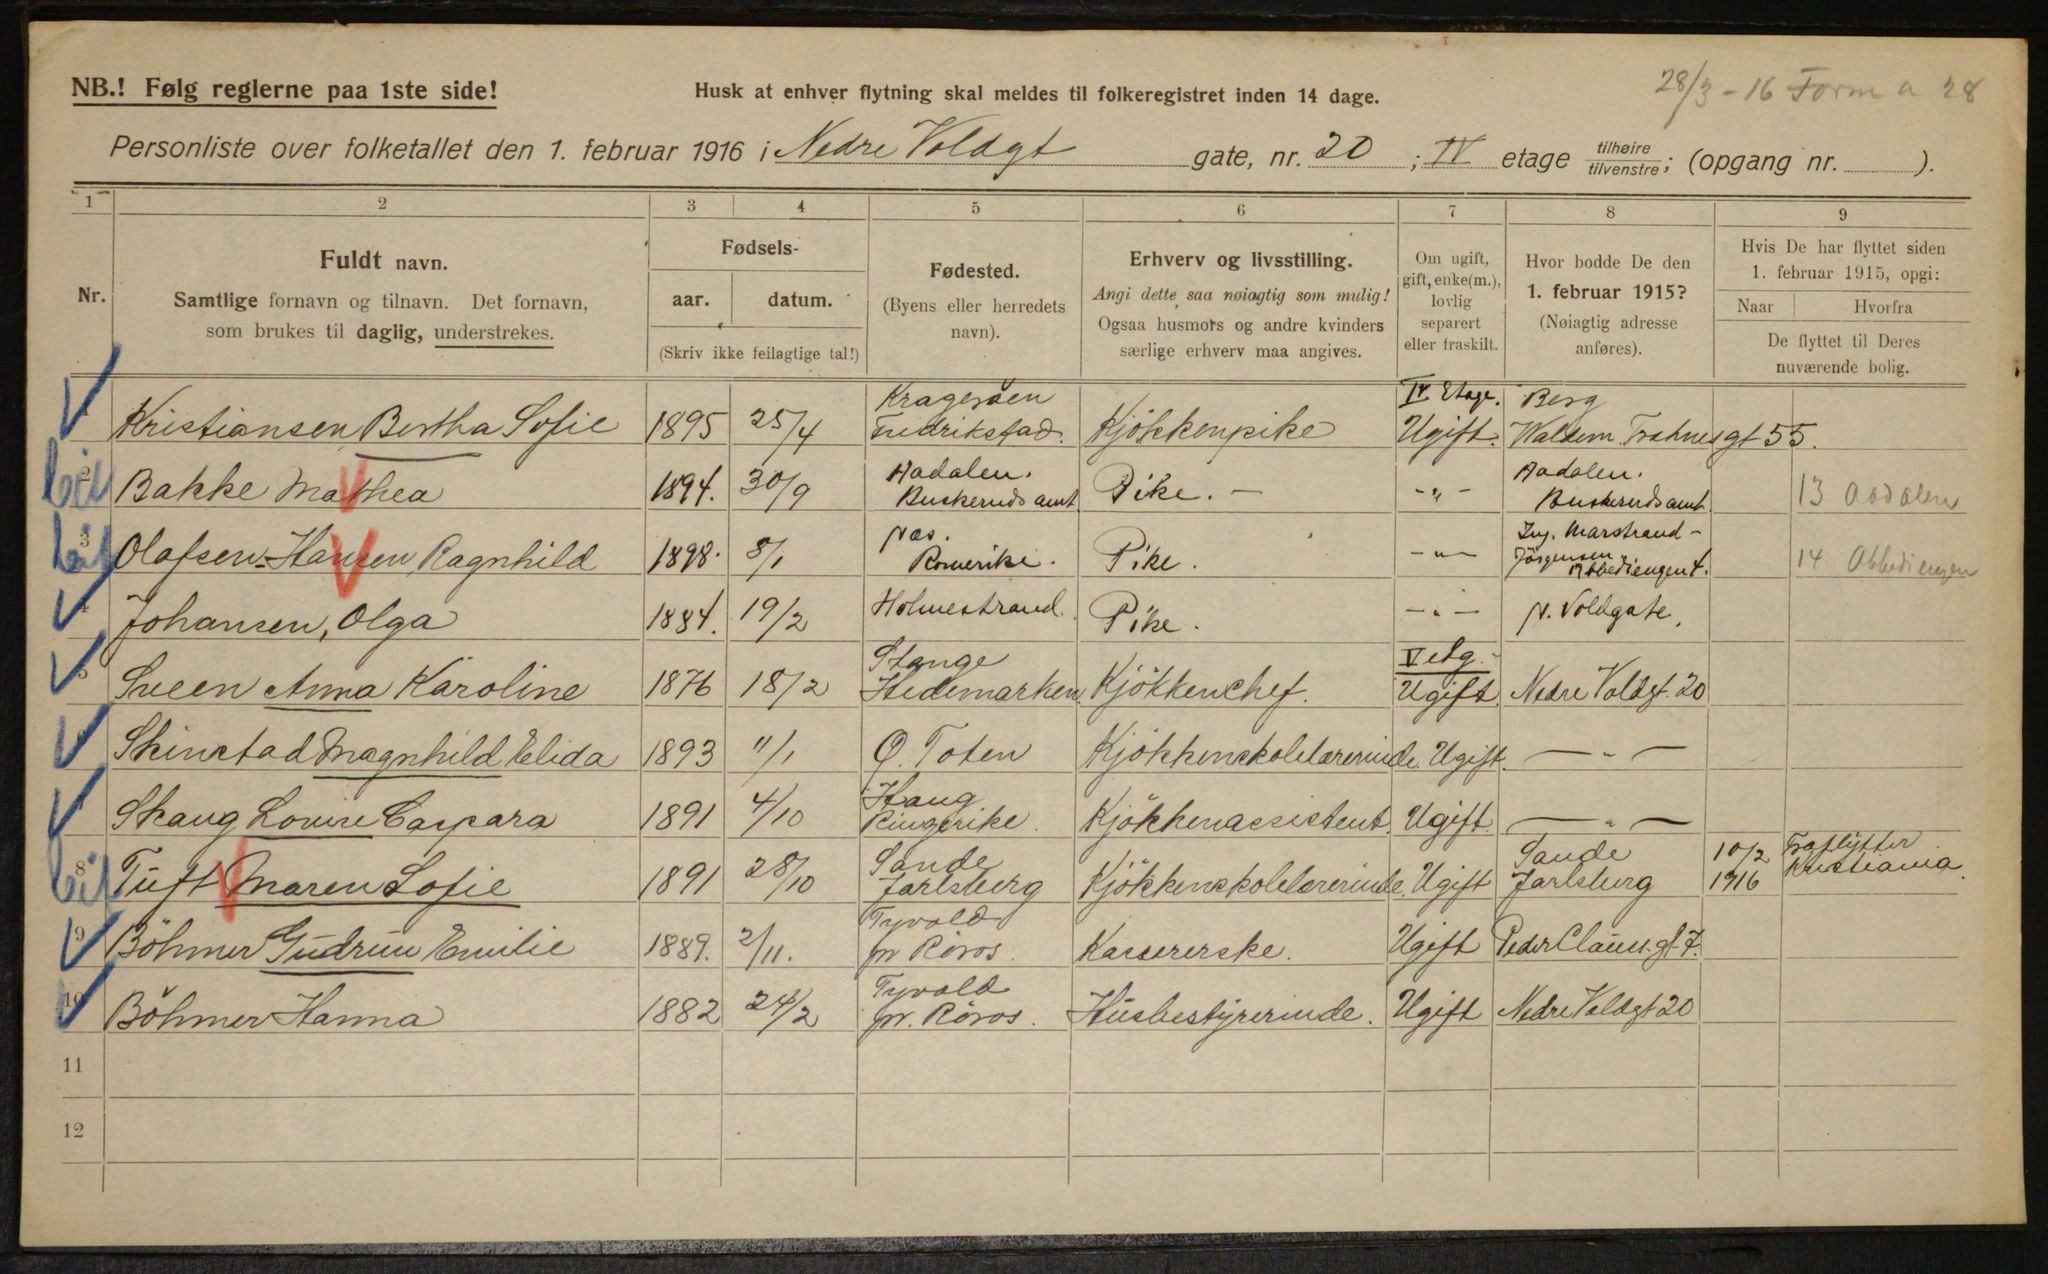 28/3 - 16 Form a 28
NB.! Følg reglerne paa 1ste side!
Husk at enhver flytning skal meldes til folkeregistret inden 14 dage.
Personliste over folketallet den 1. februar 1916 i Nedre Voldgt gate, nr. 20 ; IV etage tilhøire/tilvenstre; (opgang nr. ).
1 2 3 4 5 6 7 8 9
Nr.
Fuldt navn.
Samtlige fornavn og tilnavn. Det fornavn,
som brukes til daglig, understrekes.
Fødsels-
aar. datum.
(Skriv ikke feilagtige tal!)
Fødested.
(Byens eller herredets
navn).
Erhverv og livsstilling.
Angi dette saa nøiagtig som mulig!
Ogsaa husmors og andre kvinders
særlige erhverv maa angives.
Om ugift,
gift, enke(m.),
lovlig
separert
eller fraskilt.
Hvor bodde De den
1. februar 1915?
(Nøiagtig adresse
anføres).
Hvis De har flyttet siden
1. februar 1915, opgi:
Naar Hvorfra
De flyttet til Deres
nuværende bolig.
Kragerøen IV Etage. Berg
1 Kristiansen Bertha Sofie 1895 25/4 Fredrikstad. Kjökkenpike Ugift. Waldem. Trahnesgt 55.
Aadalen. Aadalen.
2 Bakke Mathea 1894. 30/9 Buskeruds amt. Pike. — -"- Buskeruds amt. 13 Aadalen
Nes. Ing. Marstrand -
3 Olafsen-Hansen, Ragnhild 1898. 8/1 Romerike. Pike. -"- Jörgensen Abbediengen t. 14 Abbediengen
4 Johansen, Olga 1884. 19/2 Holmestrand. Pike. -"- N. Voldgate.
Stange V etg. -
5 Sveen Anna Karoline 1876 18/2 Hedemarken. Kjökkenchef. Ugift. Nedre Voldgt. 20
6 Skinstad Magnhild Elida 1893 11/1 Ø. Toten Kjökkenskolelærerinde. Ugift. — " —
Haug
7 Skaug Lovise Caspara 1891 4/10 Ringerike. Kjökkenassistent. Ugift. — " —
Sande Sande 10/2 Fraflytter
8 Tuft Maren Sofie 1891 28/10 Jarlsberg Kjökkenskolelærerinde. Ugift Jarlsberg 1916 Kristiania.
Tyvold
9 Böhmer Gudrun Emilie 1889. 2/11. pr Röros. Kassererske. Ugift Peder Claus. gt. 7.
Tyvold
10 Böhmer Hanna 1882 24/2 pr. Röros. Husbestyrerinde. Ugift Nedre Voldgt 20
11
12